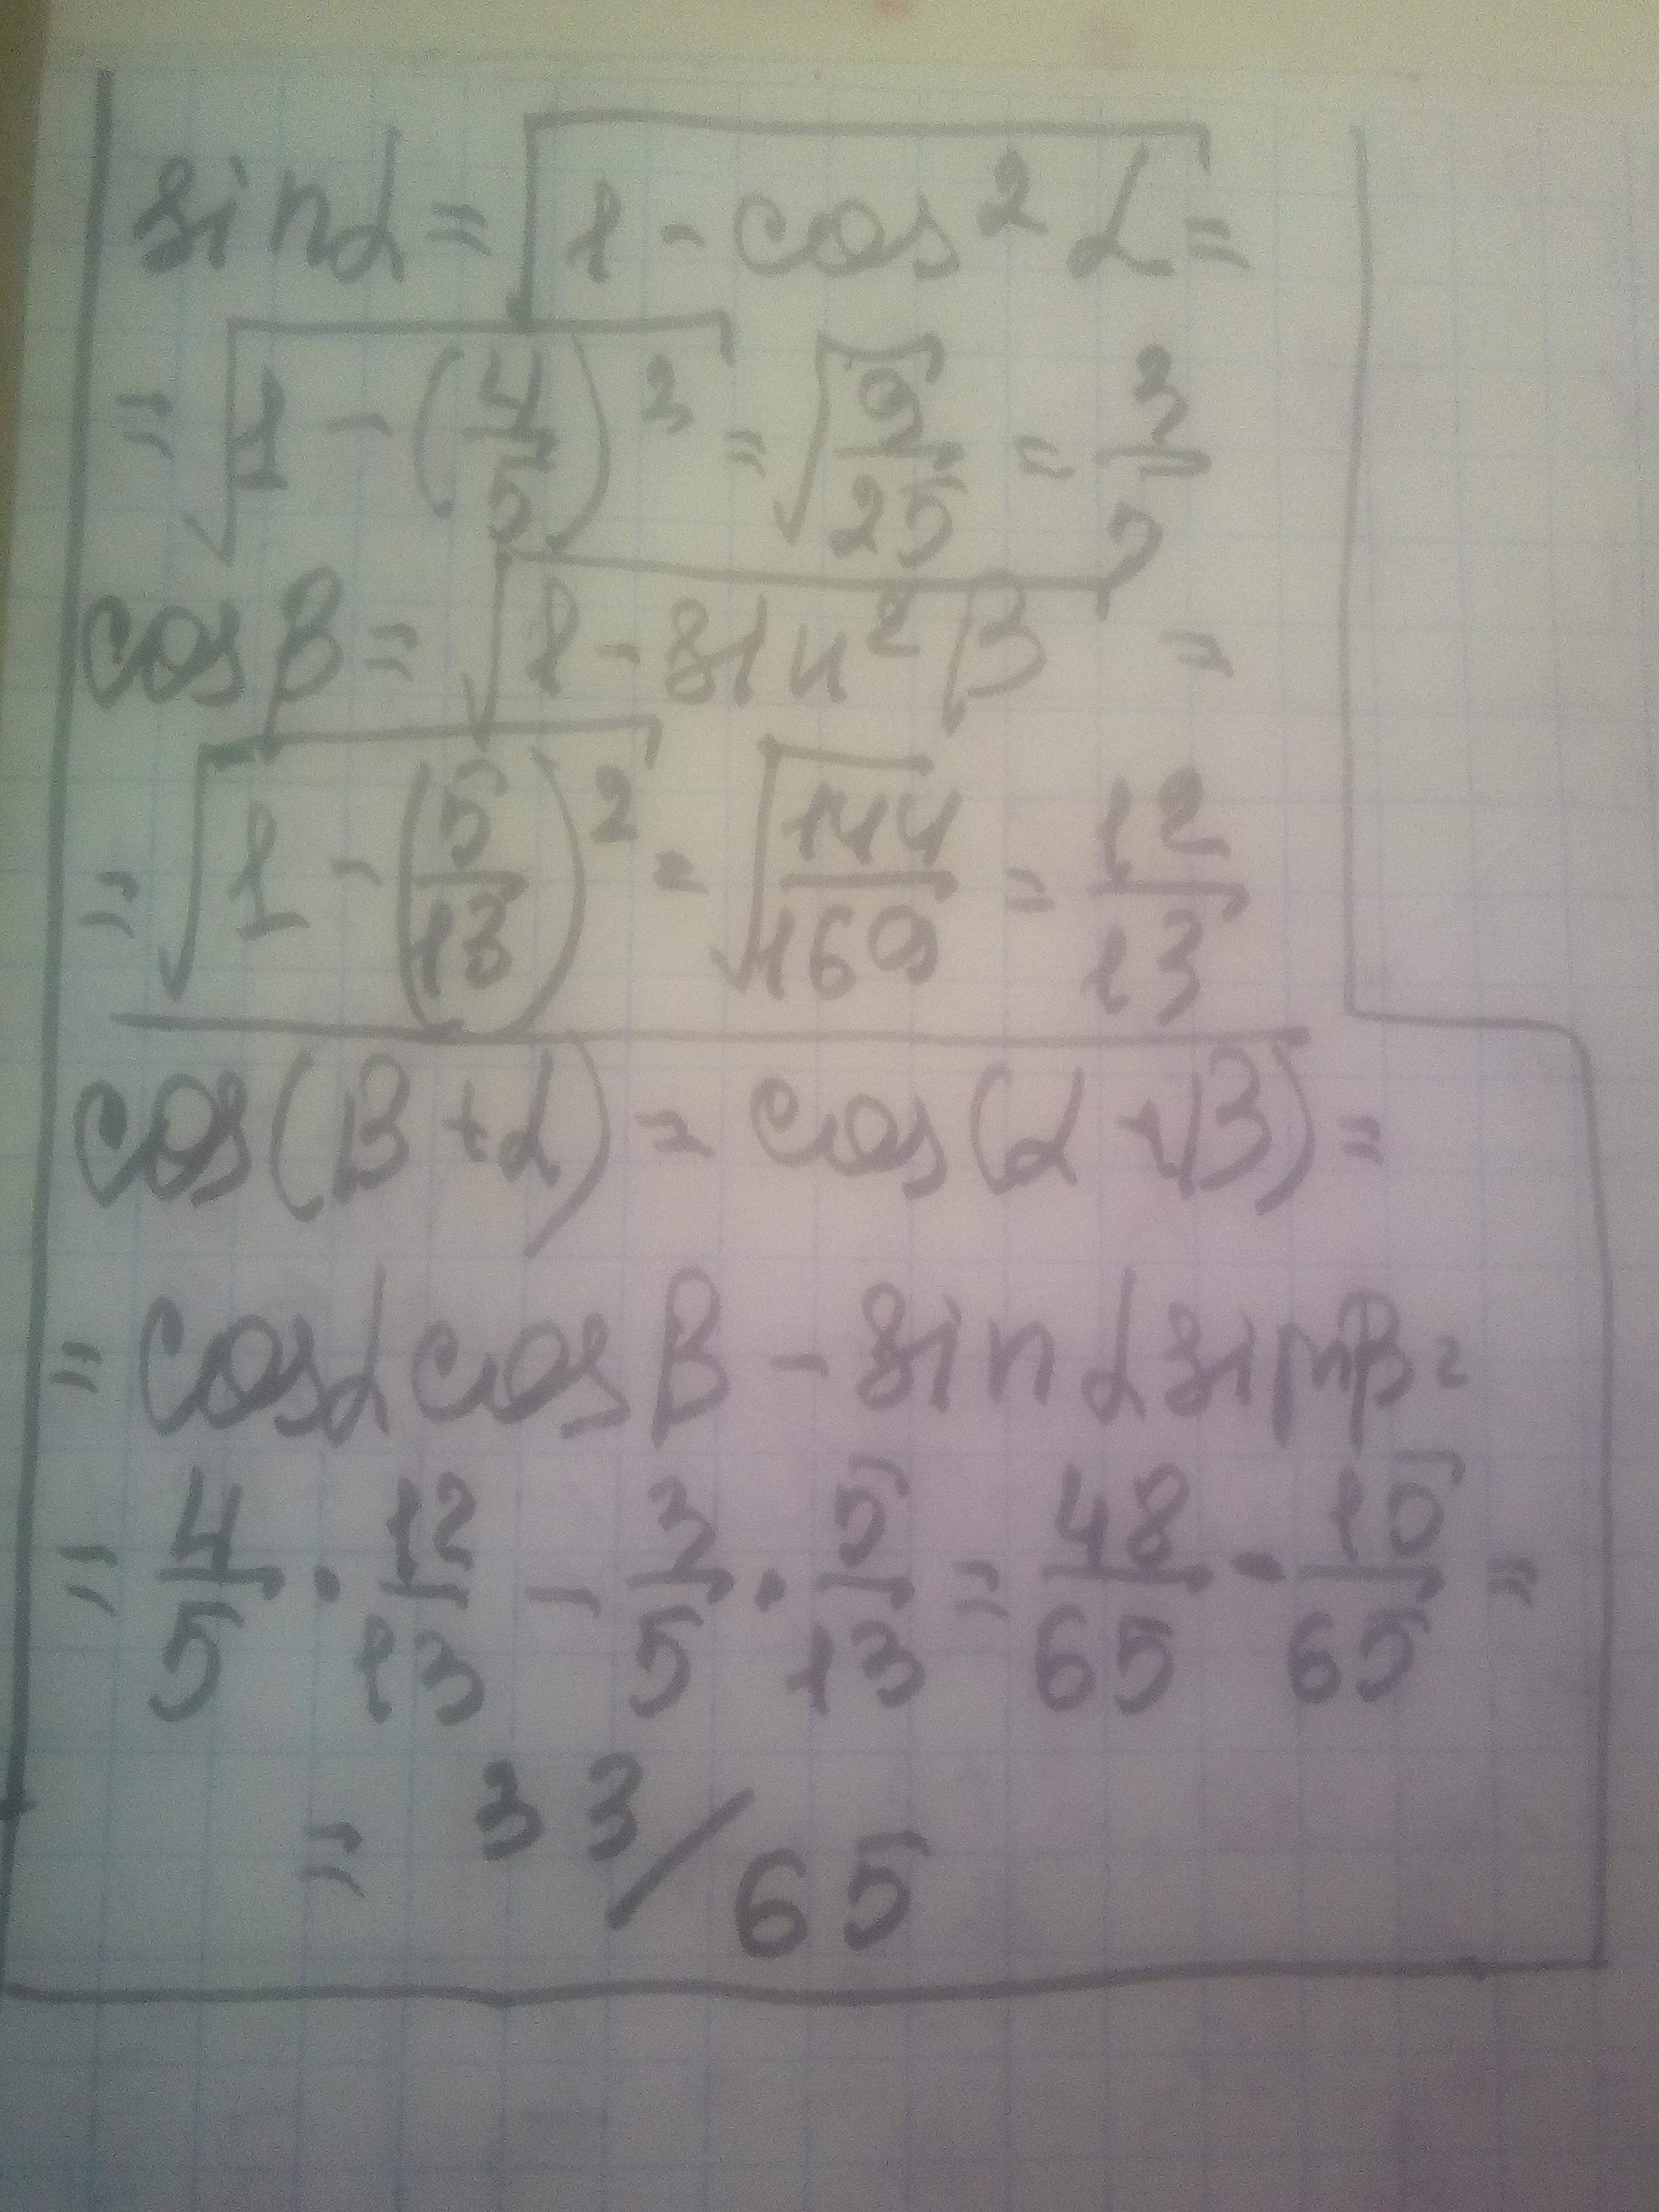 sin α = √(1 - cos² α) =
= √(1 - (4/5)³) = √(9/25) = 3/5
cos β = √(1 - sin² β) =
= √(1 - (5/13)²) = √(144/169) = 12/13
cos(β + α) = cos(α + β) =
= cos α cos β - sin α sin β =
= 4/5 · 12/13 - 3/5 · 5/13 = 48/65 - 15/65 =
= 33/65